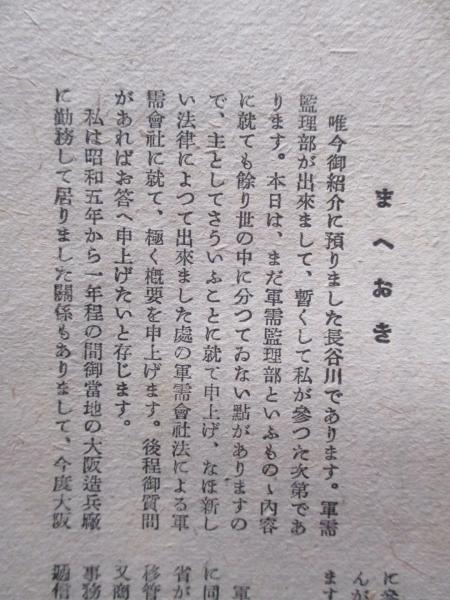 まへおき
唯今御紹介に預りました長谷川であります。軍需
監理部が出來まして、暫くして私が參つた次第であ
ります。本日は、まだ軍需監理部といふものゝ內容
に就ても餘り世の中に分つてゐない點がありますの
で、主としてさういふことに就て申上げ、なほ新し
い法律によつて出來ました處の軍需會社法による軍
需會社に就て、極く槪要を申上げます。後程御質問
があればお答へ申上げたいと存じます。
私は昭和五年から一年程の間御當地の大阪造兵廠
に勤務して居りました關係もありまして、今度大阪
に
んが
ます
軍
に同
省が
移管
又商
事務
通信